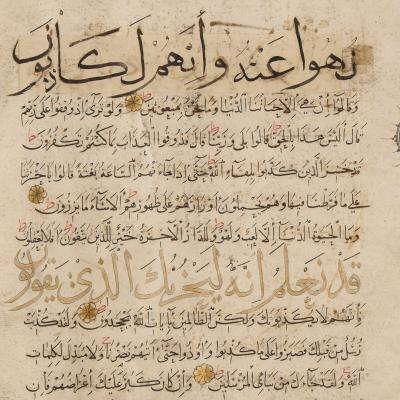 نهوا عنه وأنهم لكاذبون
وقالوا إن هي إلا حياتنا الدنيا وما نحن بمبعوثين ولو ترى إذ وقفوا على ربهم
قال أليس هذا بالحق قالوا بلى وربنا قال فذوقوا العذاب بما كنتم تكفرون
قد خسر الذين كذبوا بلقاء الله حتى إذا جاءتهم الساعة بغتة قالوا يا حسرتنا
على ما فرطنا فيها وهم يحملون أوزارهم على ظهورهم ألا ساء ما يزرون
وما الحيوة الدنيا إلا لعب ولهو وللدار الآخرة خير للذين يتقون أفلا تعقلون
قد نعلم إنه ليحزنك الذي يقولون
فإنهم لا يكذبونك ولكن الظالمين بآيات الله يجحدون ولقد كذبت
رسل من قبلك فصبروا على ما كذبوا وأوذوا حتى أتاهم نصرنا ولا مبدل لكلمات
الله ولقد جاءك من نبإي المرسلين وإن كان كبر عليك إعراضهم فإن